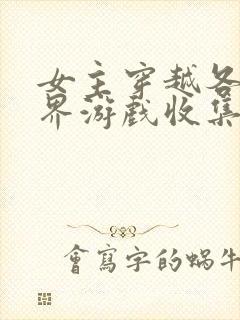 女主穿越各
界游戏收集
會寫字的蝸牛